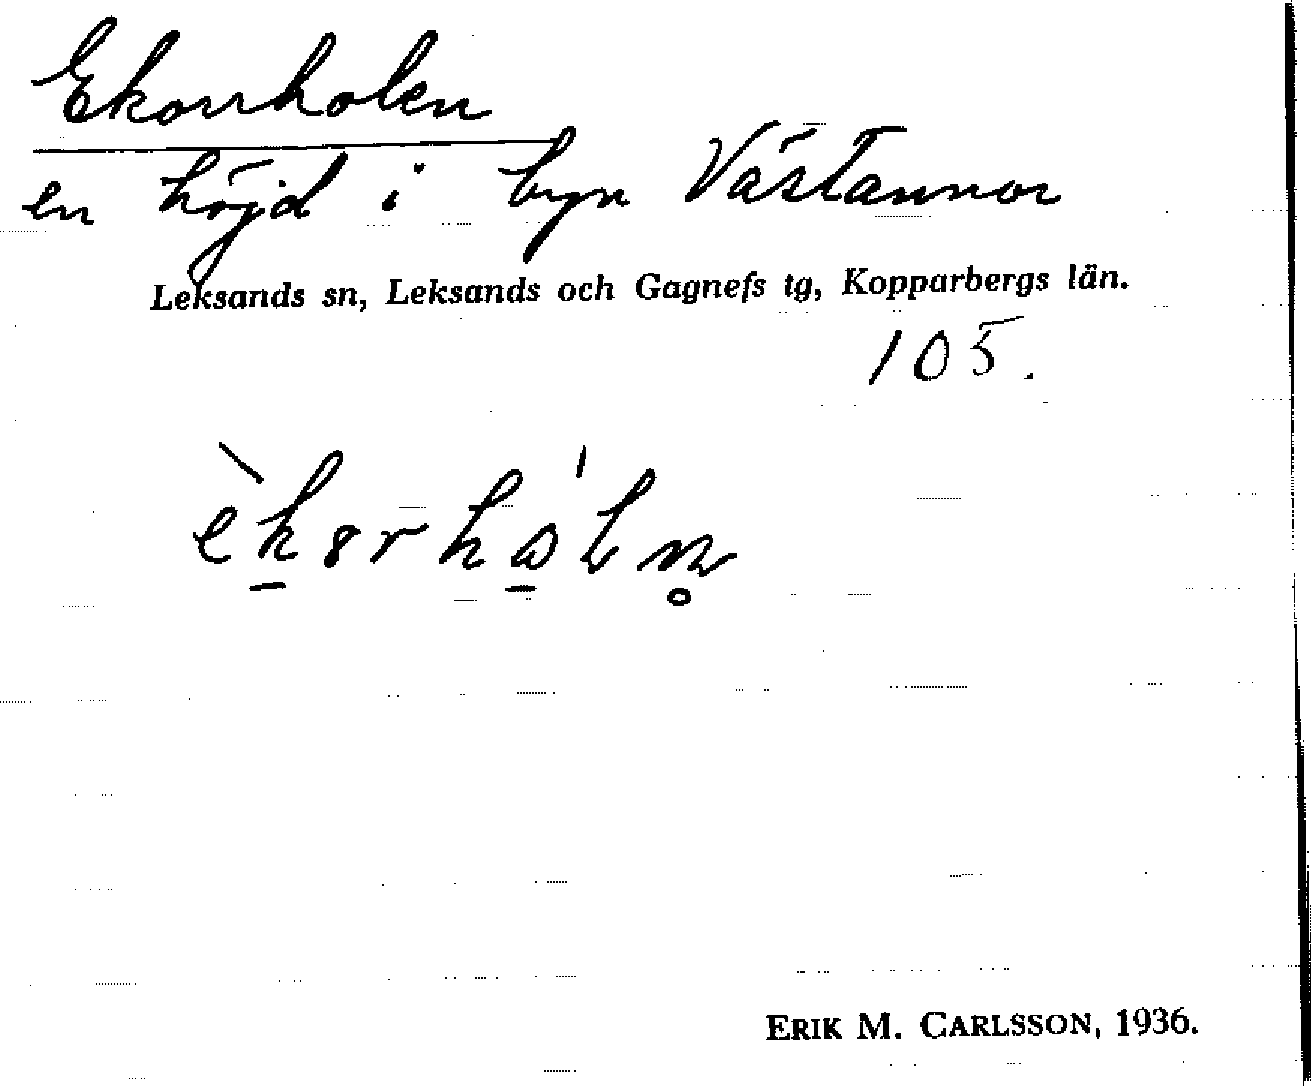 Ekorrholen
en höjd i byn Västannor
Leksands sn, Leksands och Gagnefs tg, Kopparbergs län.
105.
ERIK M. CARLSSON, 1936.